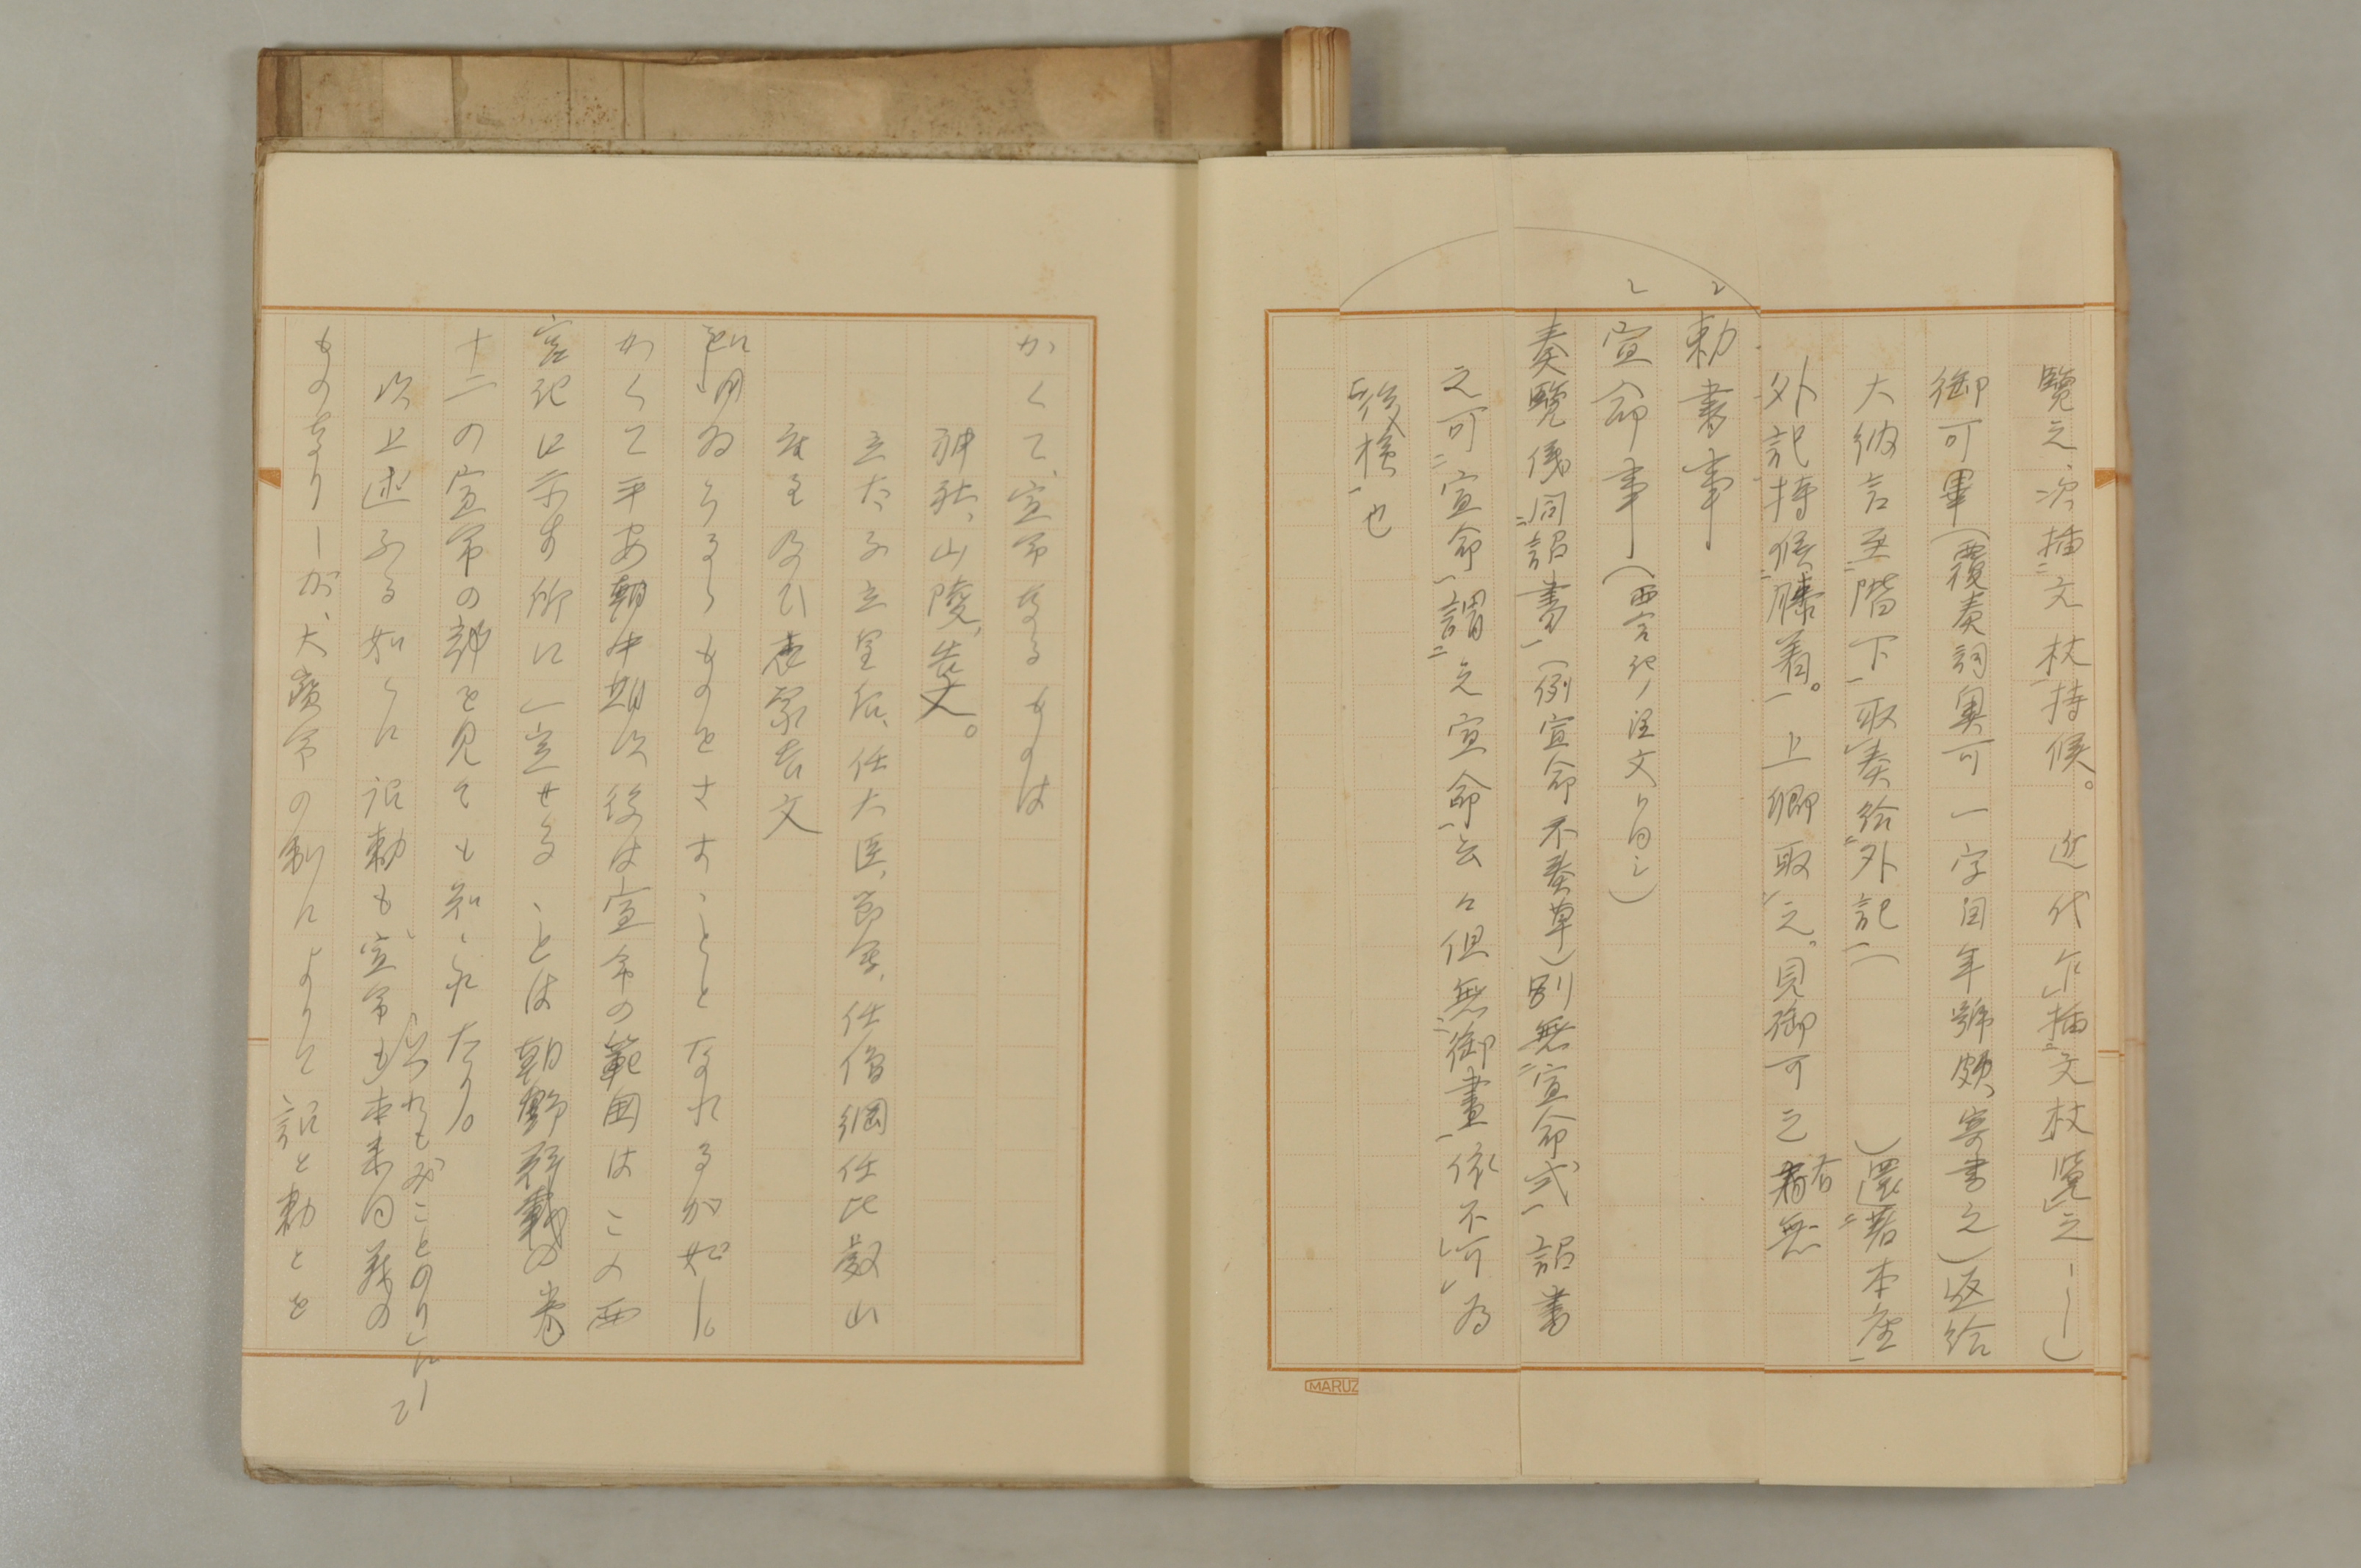 覽之、次插文杖持候。近代乍插文杖覽之――)
御可畢(覆奏詞奧可一字因年號頗寄書之)返給
大納言至階下取奏給外記(　)還著本座
外記持候膝着。上卿取之。見御可之有無
勅書事
宣命事(西宮記ノ注文ハ同シ)
奏覽儀同詔書(例宣命不奏草)別無宣命式詔書
之可宣命謂之宣命云々但無御畫依不可為
後檢也
MARUZ
かくて、宣命なるものは
神社、山陵、告文。
立太子立皇后、任大臣、節會、任僧綱任比叡山
座主及び喪家告文
に用ゐらるゝものをさすことゝなれるが如し。
かくて平安朝中期以後は宣命の範囲はこの西
宮記に示す所に一定せることは朝野群載の巻
十二の宣命の部を見ても知られたり。
以上述ぶる如くに詔勅も宣命も本来同義の
いづれもみことのりにて
ものなりしが、大寳令の制によりて詔と勅とを